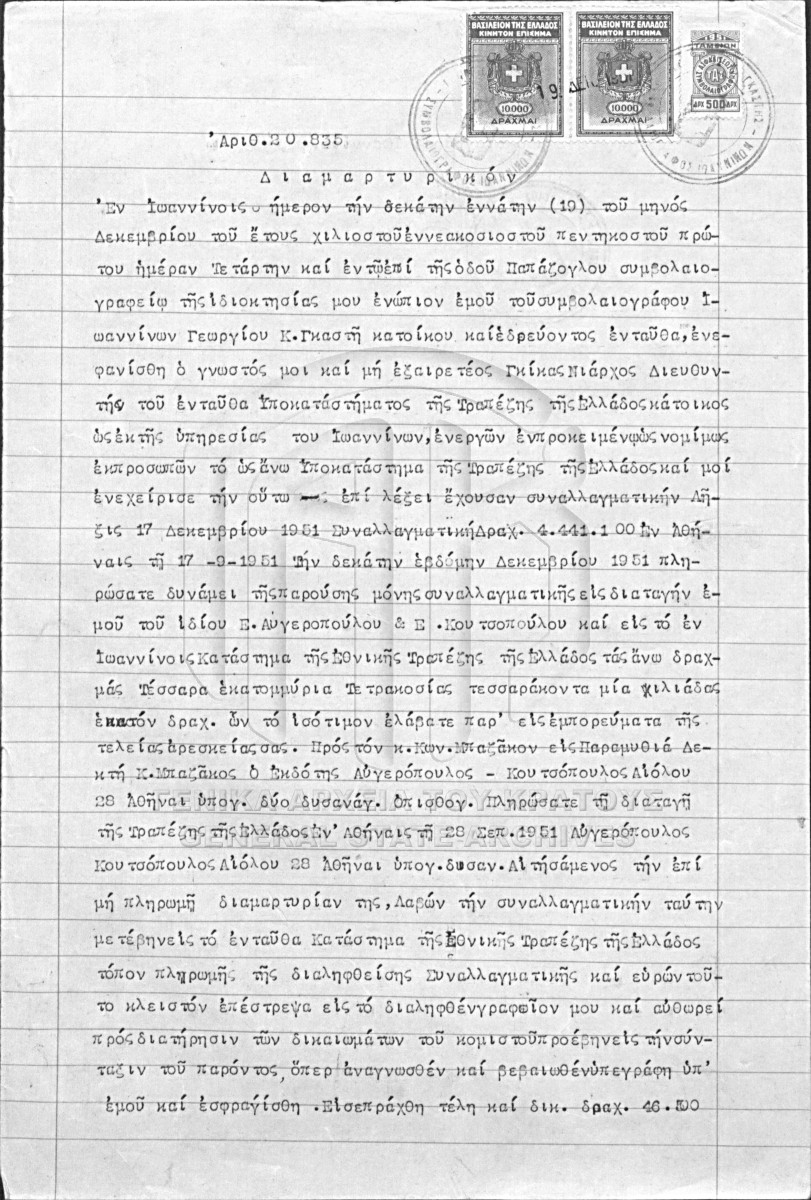 ΒΑΣΙΛΕΙΟΝ ΤΗΣ ΕΛΛΑΔΟΣ
ΚΙΝΗΤΟΝ ΕΠΙΣΗΜΑ
10000
ΔΡΑΧΜΑΙ
ΒΑΣΙΛΕΙΟΝ ΤΗΣ ΕΛΛΑΔΟΣ
ΚΙΝΗΤΟΝ ΕΠΙΣΗΜΑ
10000
ΔΡΑΧΜΑΙ
ΔΡΧ 500 ΔΡΧ
Ἀριθ.20.835
Διαμαρτυρικόν
Ἐν Ἰωαννίνοις σήμερον τήν δεκάτην ἐννάτην (19) τοῦ μηνός
Δεκεμβρίου τοῦ ἔτους χιλιοστοῦἐννεακοσιοστοῦ πεντηκοστοῦ πρώ-
του ἡμέραν Τετάρτην καί ἐντῷἐπί τῆςὁδοῦ Παπάζογλου συμβολαιο-
γραφείῳ τῆςἰδιοκτησίας μου ἐνώπιον ἐμοῦ τοῦσυμβολαιογράφου Ἰ-
ωαννίνων Γεωργίου Κ.Γκαστῆ κατοίκου καίἑδρεύοντος ἐνταῦθα,ἐνε-
φανίσθη ὁ γνωστός μοι καί μή ἐξαιρετέος ΓκίκαςΝιάρχος Διευθυν-
τής τοῦ ἐνταῦθα Ὑποκατάστήματος τῆς Τραπέζης τῆςἙλλάδοςκάτοικος
ὡςἐκτῆς ὑπηρεσίας του Ἰωαννίνων,ἐνεργῶν ἐνπροκειμένῳὡςνομίμως
ἐκπροσωπῶν τό ὡςἄνω Ὑποκατάστημα τῆςΤραπέζης τῆςἙλλάδοςκαί μοί
ἐνεχείρισε τήν οὕτω ἐπί λέξει ἔχουσαν συναλλαγματικήν Λῆ-
ξις 17 Δεκεμβρίου 1951 ΣυναλλαγματικήΔραχ. 4.441.100 Ἐν Ἀθή-
ναις τῇ 17 -9-1951 Τήν δεκάτην ἑβδόμην Δεκεμβρίου 1951 πλη-
ρώσατε δυνάμει τῆςπαρούσης μόνηςσυναλλαγματικῆςεἰςδιαταγήν ἐ-
μοῦ τοῦ ἰδίου Ε.Αὐγεροπούλου & Ε .Κουτσοπούλου καί εἰςτό ἐν
ἸωαννίνοιςΚατάστημα τῆςἘθνικῆς Τραπέζης τῆςἙλλάδος τάςἄνω δραχ-
μάς Τέσσαρα ἑκατομμύρια Τετρακοσίας τεσσαράκοντα μία χιλιάδας
ἑκατόν δραχ. ὧν τό ἰσότιμον ἐλάβατε παρ' εἰςἐμπορεύματα τῆς
τελείαςἀρεσκείαςσας. Πρόςτόν κ.Κων.Μπαζᾶκον εἰςΠαραμυθιά Δε-
κτή Κ.Μπαζᾶκος ὁ Ἐκδότης Αὐγερόπουλος - ΚουτσόπουλοςΑἰόλου
28 Ἀθῆναι ὑπογ. δύο δυσανάγ. Ὀπισθογ. Πληρώσατε τῇ διαταγῇ
τῆςΤραπέζης τῆςἙλλάδοςἘν' Ἀθήναις τῇ 28 Σεπ.1951 Αὐγερόπουλος
ΚουτσόπουλοςΑἰόλου 28 Ἀθῆναι ὑπογ.δυσαν.Αἰτησάμενος τήν ἐπί
μή πληρωμῇ διαμαρτυρίαν της,Λαβών τήν συναλλαγματικήν ταύτην
μετέβηνεἰς τό ἐνταῦθα Κατάστημα τῆςἘθνικῆς Τραπέζης τῆςἙλλάδος
τόπον πληρωμῆς τῆς διαληφθείσης Συναλλαγματικῆς καί εὑρώντοῦ-
το κλειστόν ἐπέστρεψα εἰςτό διαληφθένγραφεῖον μου καί αὐθωρεί
πρόςδιατήρησιν τῶν δικαιωμάτων τοῦ κομιστοῦπροέβηνεἰς τήνσύν-
ταξιν τοῦ παρόντος,ὅπερ ἀναγνωσθέν καί βεβαιωθένὑπεγράφη ὑπ'
ἐμοῦ καί ἐσφραγίσθη .Εἰσεπράχθη τέλη καί δικ. δραχ. 46.500
ΓΕΝΙΚΑ ΑΡΧΕΙΑ ΤΟΥ ΚΡΑΤΟΥΣ
GENERAL STATE ARCHIVES